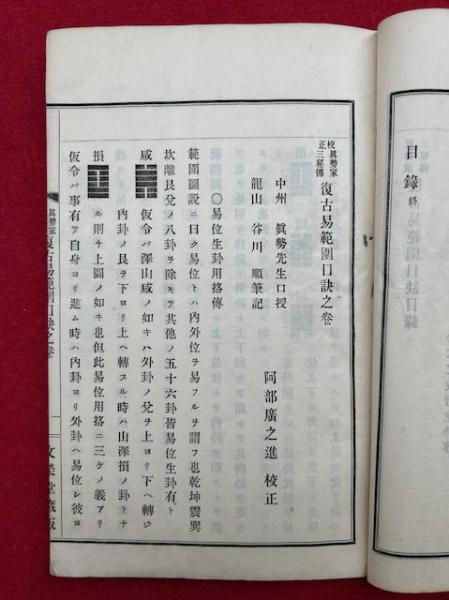 目錄 終
校正 眞勢家三秘傳 復古易範圍口訣之卷
中州 眞勢先生口授
龍山 谷川 順筆記
阿部廣之進 校正
〇易位生卦用捨傳
範圍圖說ニ曰ク易位トハ內外位ヲ易フルヲ謂フ也乾坤震巽
坎離艮兌ノ八卦ヲ除キテ其他ノ五十六卦皆易位生卦有ト
咸 假令バ澤山咸ノ如キハ外卦ノ兌ヲ上ヨリ下ヘ轉ジ
內卦ノ艮ヲ下ヨリ上ヘ轉スル時ハ山澤損ノ卦トナ
損 ル則チ上圖ノ如キ也但此易位用捨ニ三ケノ義アリ
假令バ事有テ自身ヨリ進ム時ハ內卦ヨリ外卦ヘ易位シ彼ヨ
眞勢家復古易範圍口訣之卷 一 文榮堂藏版